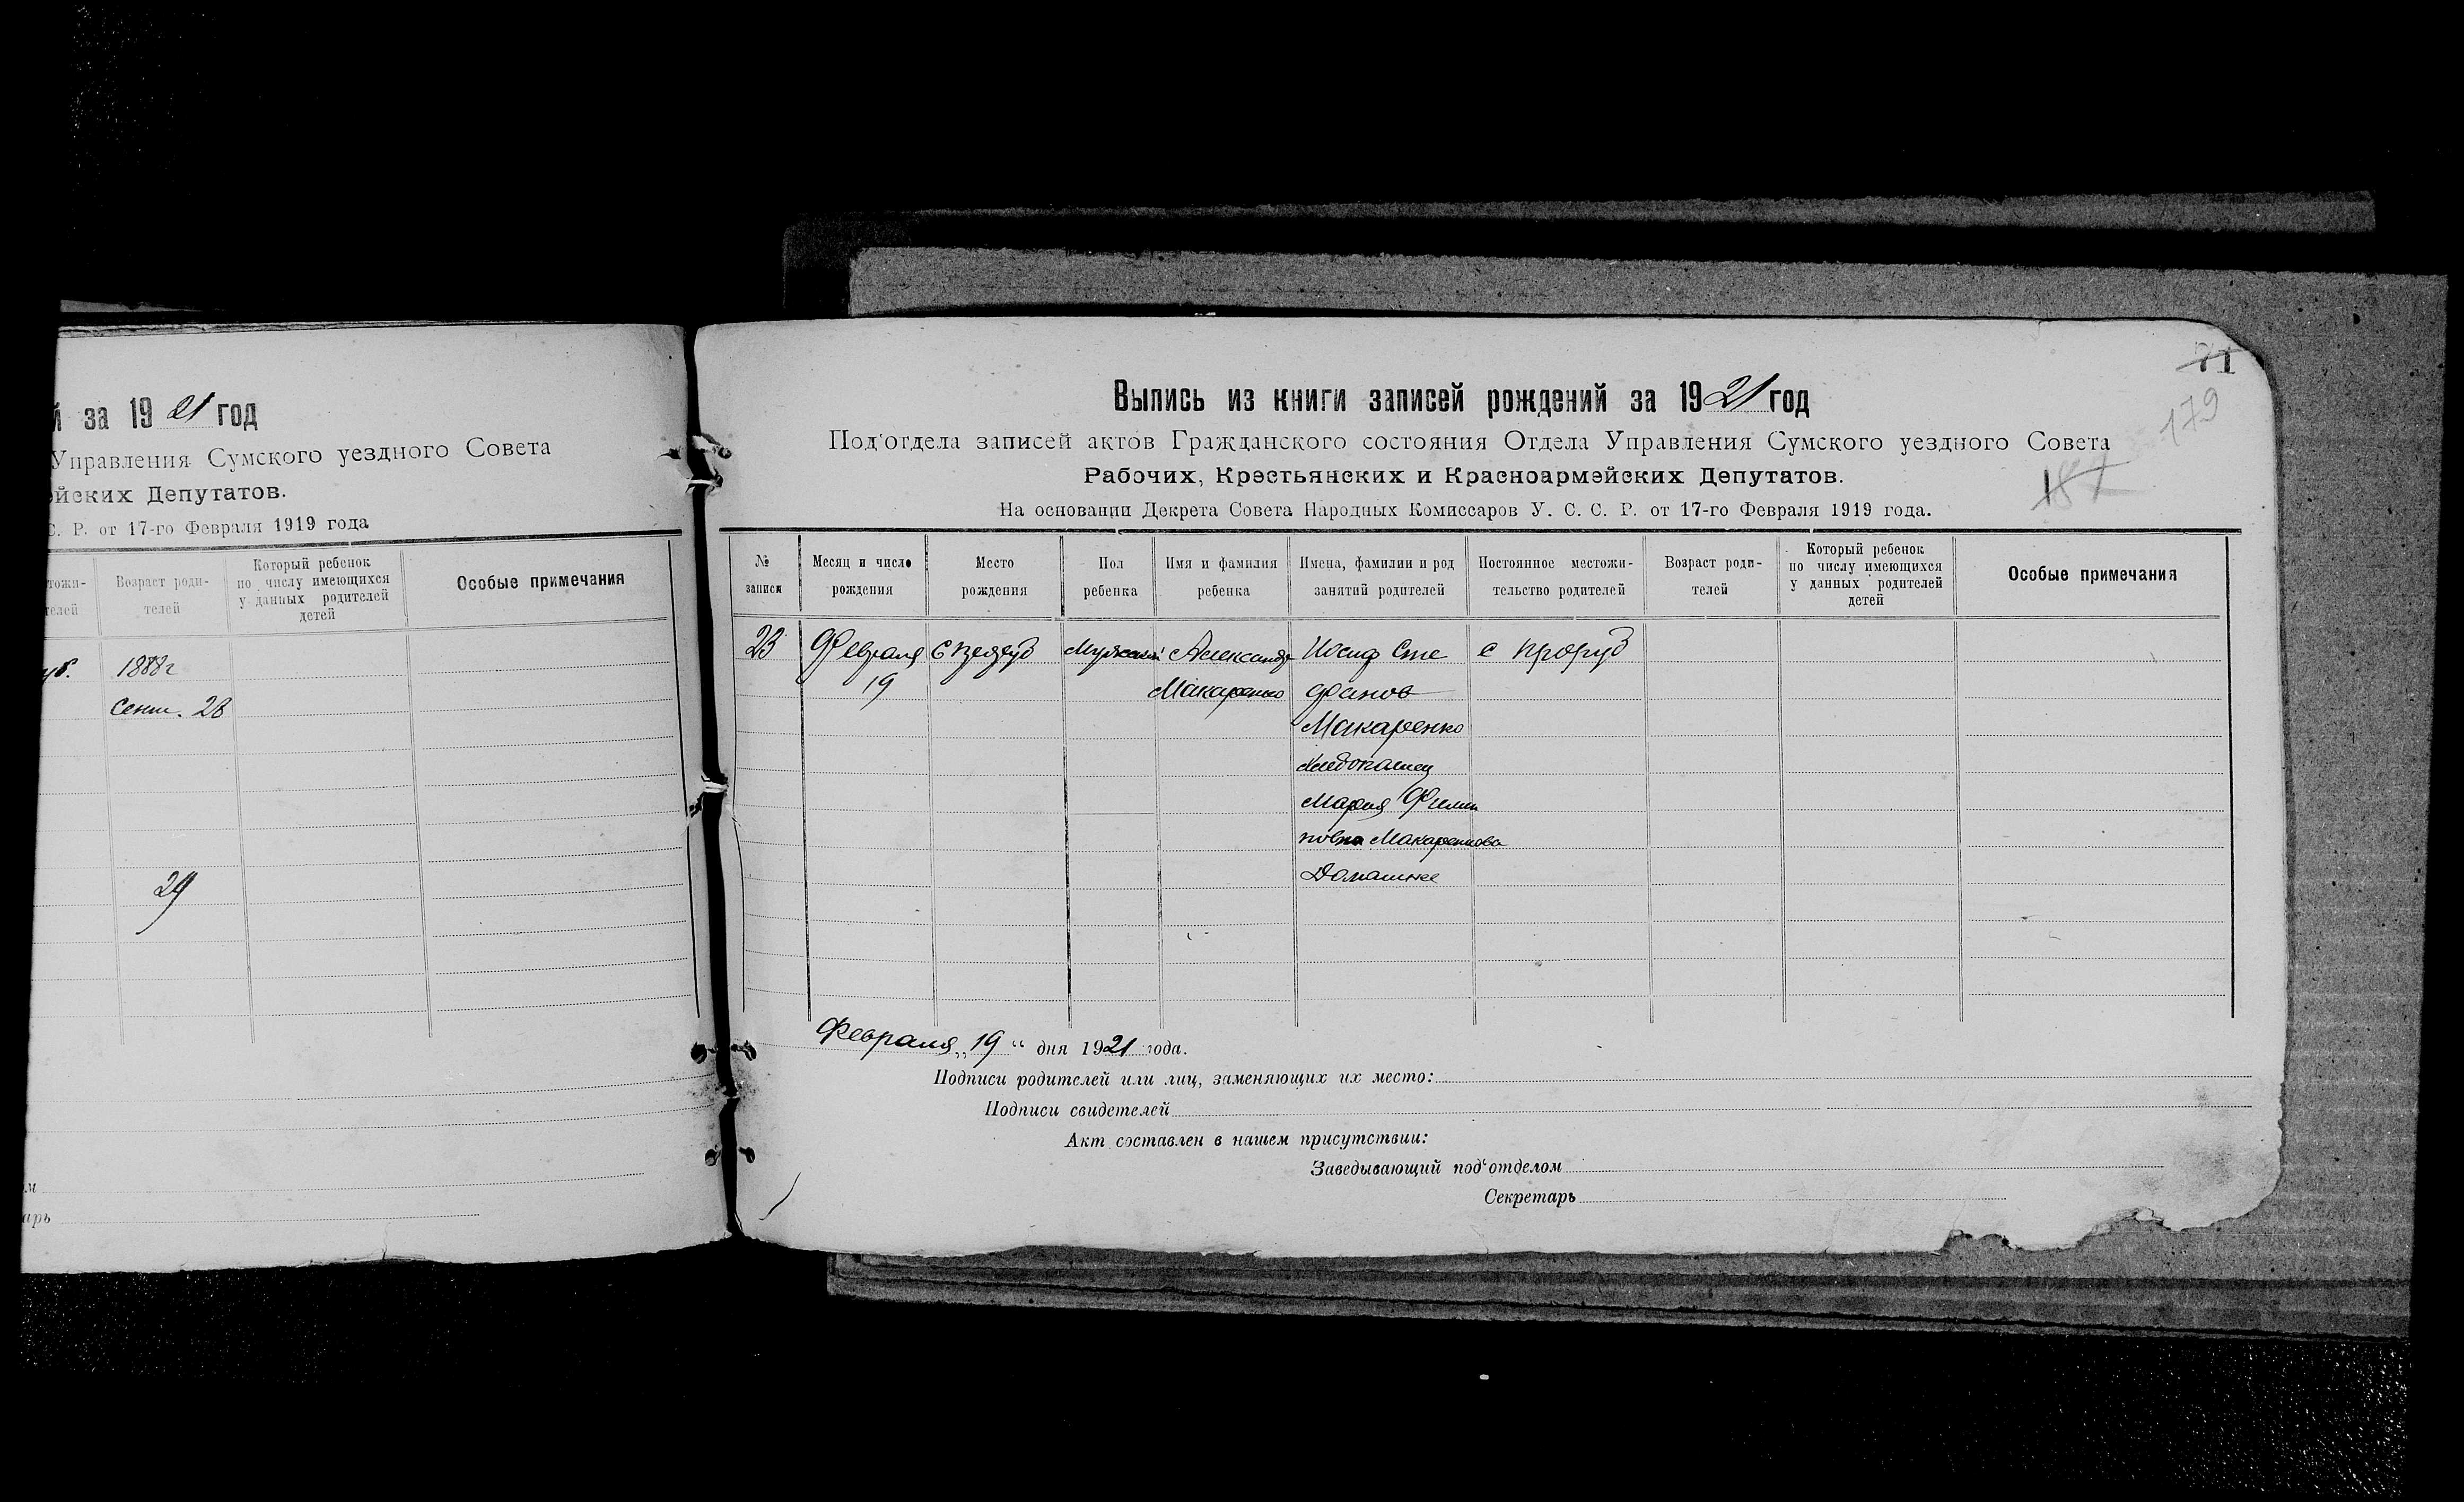 й за 1921 год
Управления Сумского уездного Совета
ейских Депутатов.
С. Р. от 17-го Февраля 1919 года
тожи-
телей
Возраст роди-
телей
Который ребенок
по числу имеющихся
у данных родителей
детей
Особые примечания
уб.
1888г
Сент. 28
29
м
арь
71
179
187
Выпись из книги записей рождений за 1921 год
Под'отдела записей актов Гражданского состояния Отдела Управления Сумского уездного Совета
Рабочих, Крестьянских и Красноармейских Депутатов.
На основании Декрета Совета Народных Комиссаров У. С. С. Р. от 17-го Февраля 1919 года.
№
записи
Месяц и число
рождения
Место
рождения
Пол
ребенка
Имя и фамилия
ребенка
Имена, фамилии и род
занятий родителей
Постоянное местожи-
тельство родителей
Возраст роди-
телей
Который ребенок
по числу имеющихся
у данных родителей
детей
Особые примечания
23
Февраля
19
с
Мужской
Александр
Макаренко
Иосиф Сте
фанов
Макаренко
Хлебопашец
Мария Филип
повна Макаренкова
Домашнее
с Проруб
Февраля „19“ дня 1921 года.
Подписи родителей или лиц, заменяющих их место:
Подписи свидетелей
Акт составлен в нашем присутствии:
Заведывающий под'отделом
Секретарь